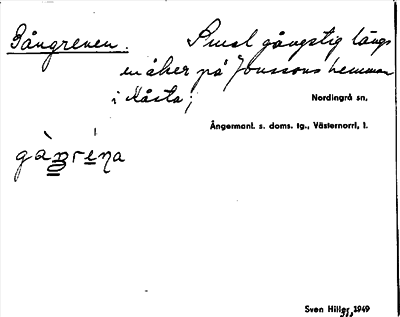 Gångrenen. Smal gångstig längs
en åker på Jonssons hemman
i Nåsta;
Nordingrå sn,
Ångermanl. s. doms. tg., Västernorrl. l.
gàŋréna
Sven Hiller, 1949